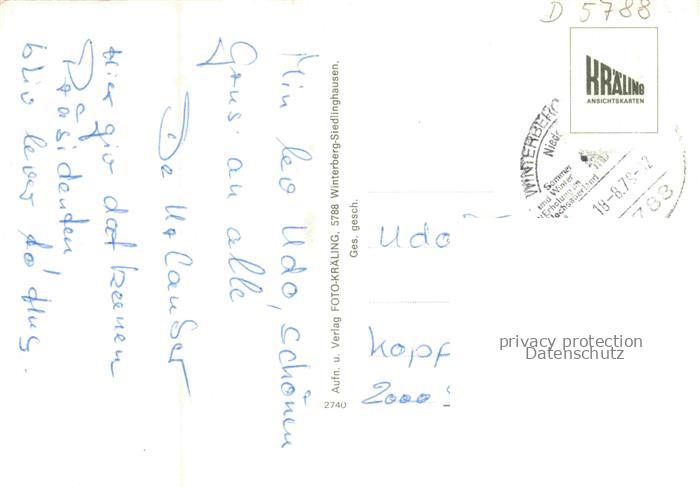 D 5788
KRÄLING
ANSICHTSKARTEN
WINTERBERG
Niede
Sommer
und Winter
Erholung im
Hochsauerland
18-8.78-12
5788
Min leo Udo, schönen
Grus an alle
De Urlauber
Hier giv dat keenen
Präsidenten
bliv lever to Hus.
Aufn. u. Verlag FOTO-KRÄLING, 5788 Winterberg-Siedlinghausen.
Ges. gesch.
2740
Udo
Kopf
2000
privacy protection
Datenschutz